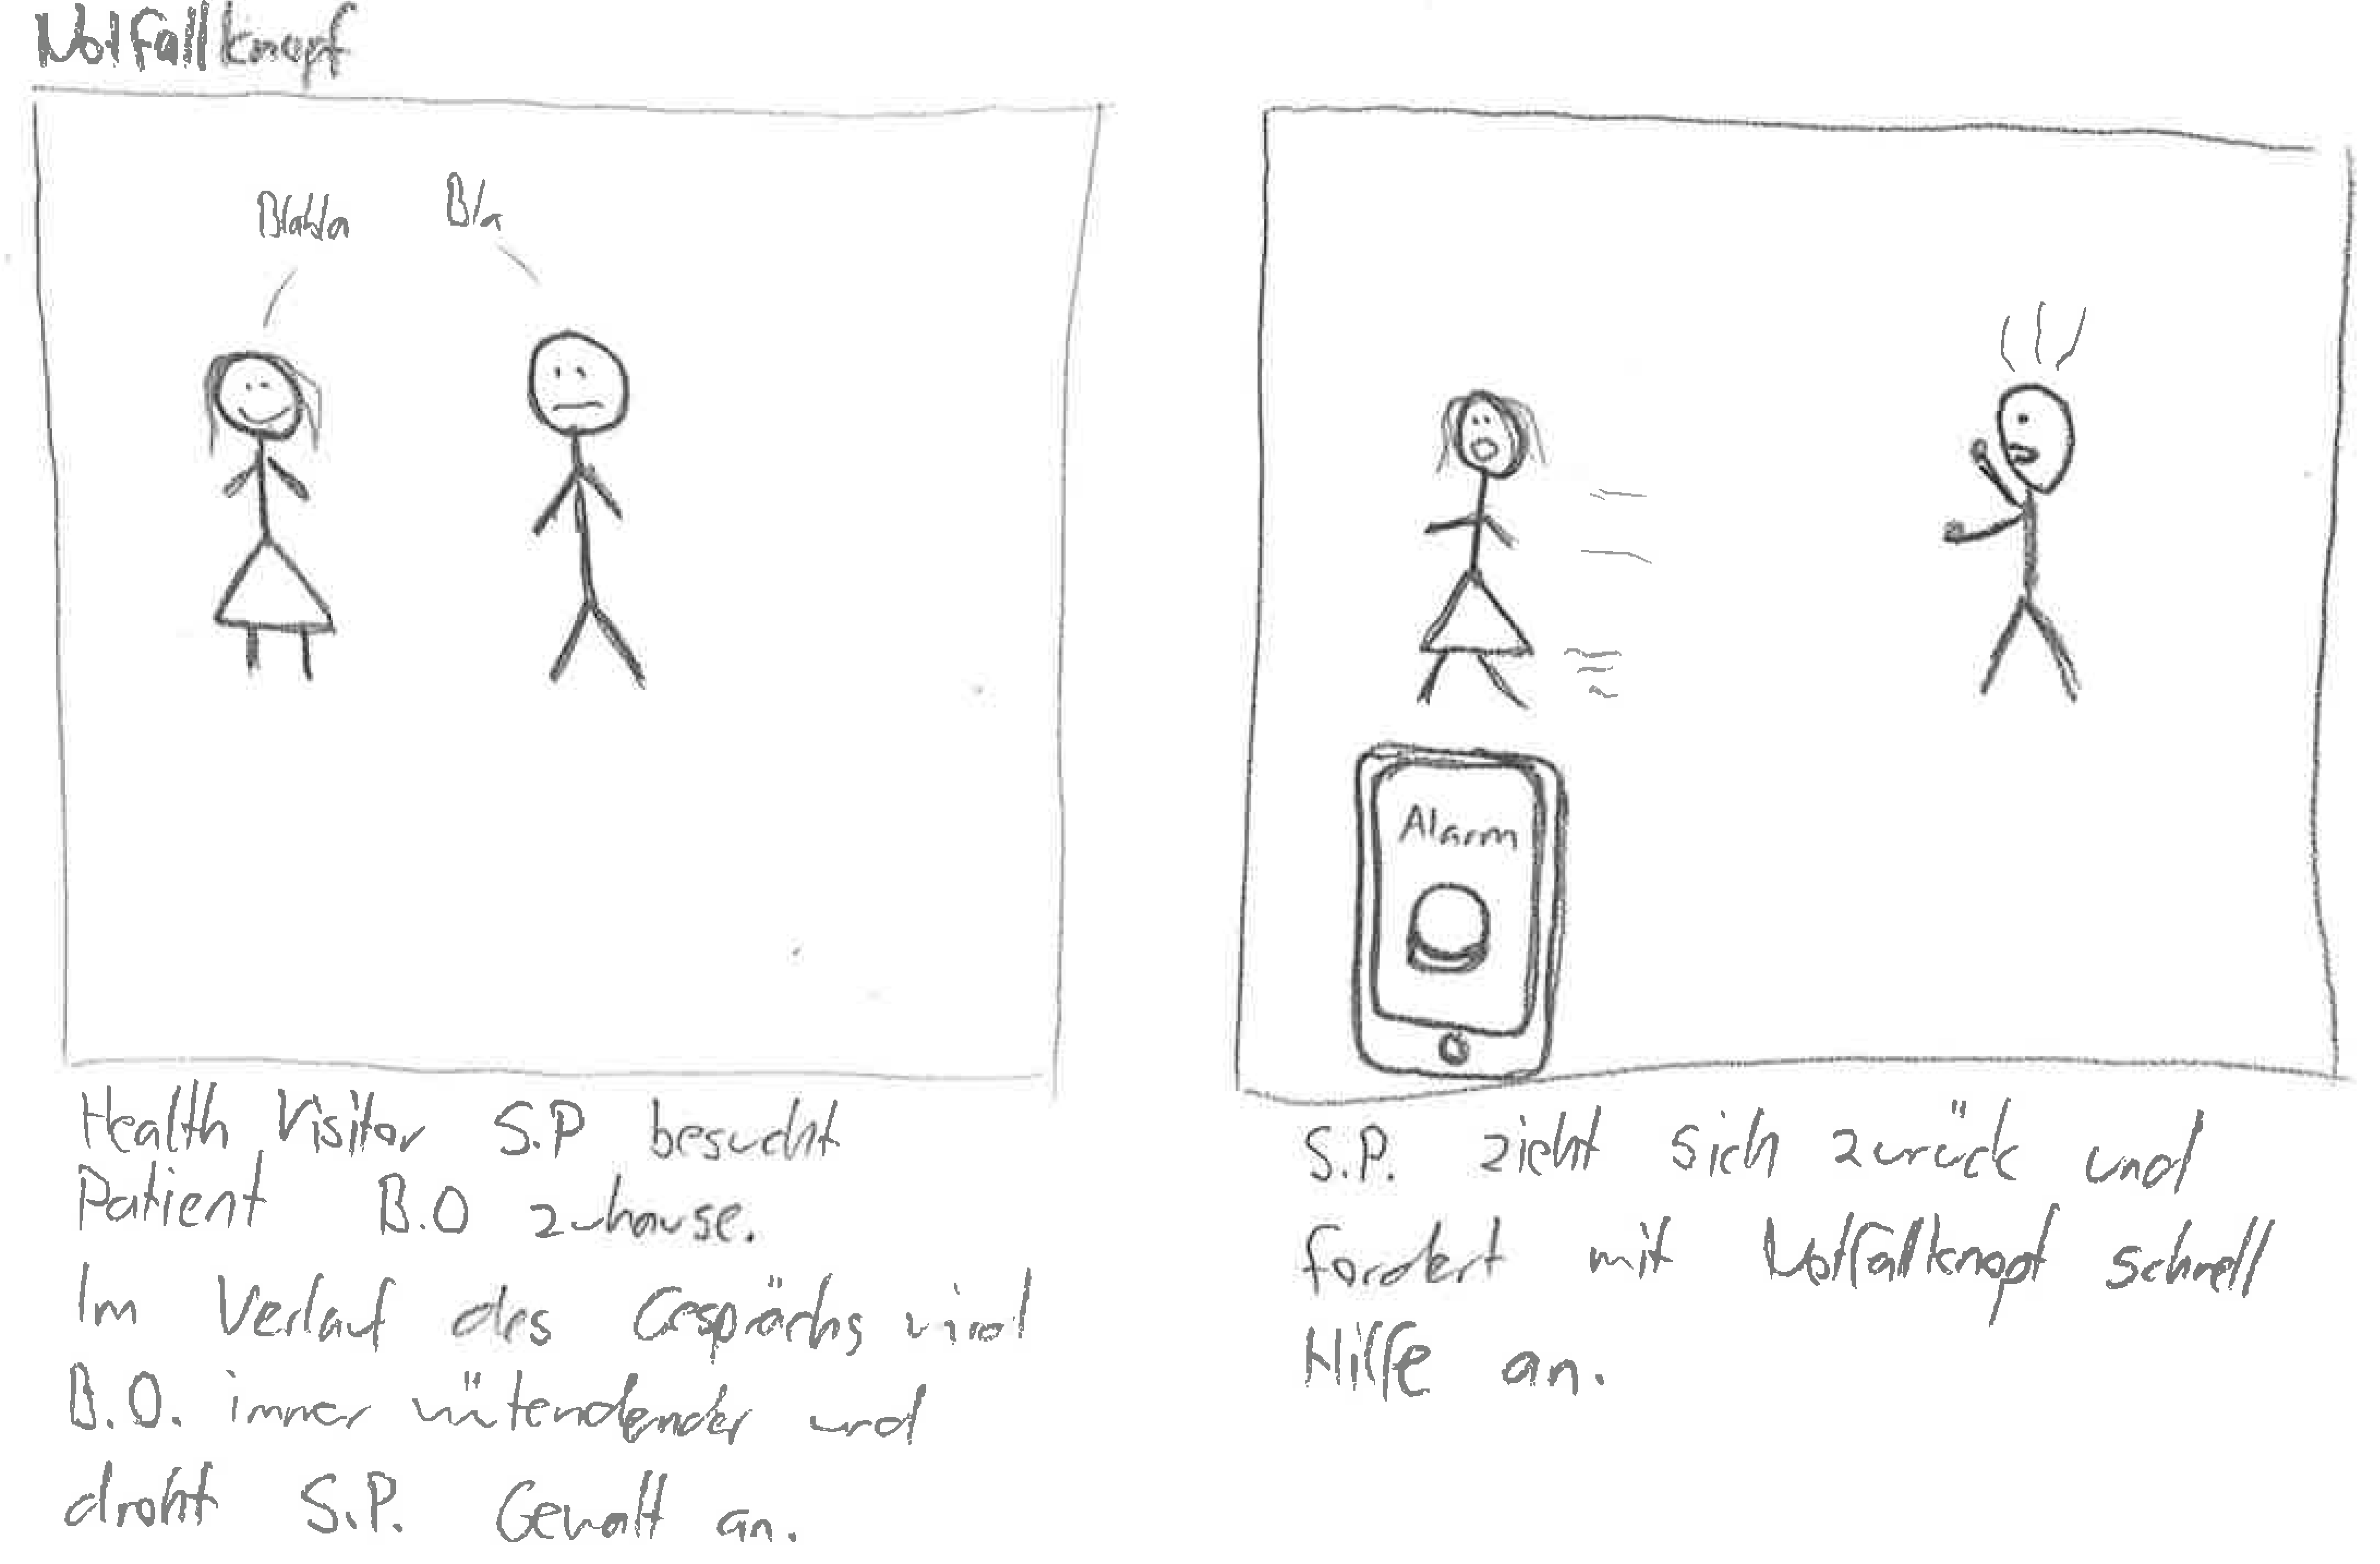 Notfallknopf
Blabla
Bla
Health Visitor S.P besucht
Patient B.O zuhause.
Im Verlauf des Gesprächs wird
B.O. immer wütendender und
droht S.P. Gewalt an.
Alarm
S.P. zieht sich zurück und
fordert mit Notfallknopf schnell
Hilfe an.